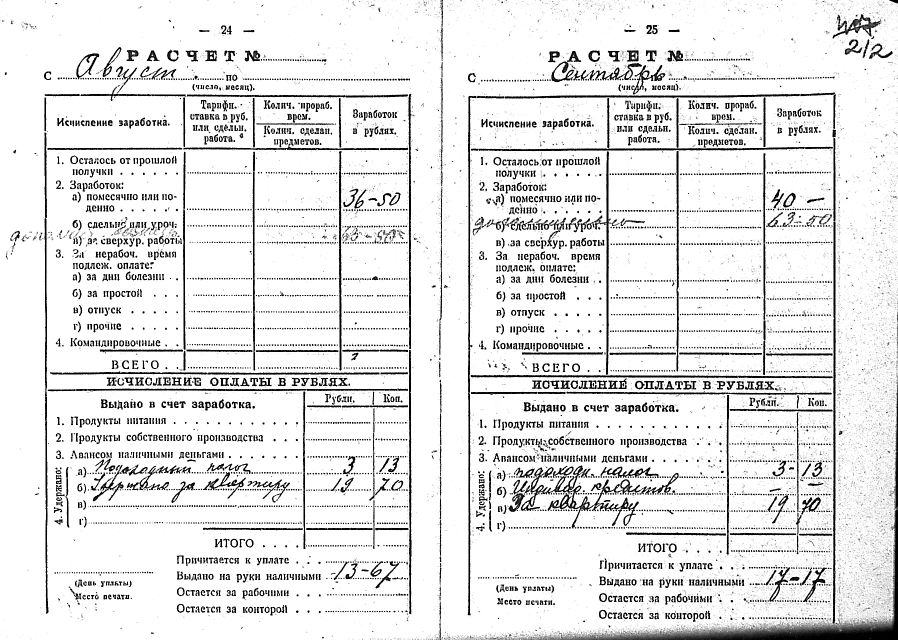 — 24 —
РАСЧЕТ №
С Август по
(число, месяц).
Исчисление заработка.
Тарифн. ставка в руб. или сдельн. работа.
Колич. прораб. врем.
Колич. сделан. предметов.
Заработок в рублях.
1. Осталось от прошлой
получки
2. Заработок:
а) помесячно или по-
денно 36-50
б) сдельно или уроч.
в) за сверхур. работы
3. За нерабоч. время
подлеж. оплате:
а) за дни болезни
б) за простой
в) отпуск
г) прочие
4. Командировочные
ВСЕГО
ИСЧИСЛЕНИЕ ОПЛАТЫ В РУБЛЯХ.
Выдано в счет заработка. Рубли. Коп.
1. Продукты питания
2. Продукты собственного производства
3. Авансом наличными деньгами
4. Удержано:
а) Подоходный налог 3 13
б) Удержано за квартиру 19 70
в)
г)
ИТОГО
Причитается к уплате
Выдано на руки наличными 13-67
(День уплаты)
Остается за рабочими
Место печати.
Остается за конторой
— 25 —
212
РАСЧЕТ №
С Сентябрь
(число, месяц).
Исчисление заработка.
Тарифн. ставка в руб. или сдельн. работа.
Колич. прораб. врем.
Колич. сделан. предметов.
Заработок в рублях.
1. Осталось от прошлой
получки
2. Заработок:
а) помесячно или по-
денно 40 —
б) сдельно или уроч. 63-50
в) за сверхур. работы
3. За нерабоч. время
подлеж. оплате:
а) за дни болезни
б) за простой
в) отпуск
г) прочие
4. Командировочные
ВСЕГО
ИСЧИСЛЕНИЕ ОПЛАТЫ В РУБЛЯХ.
Выдано в счет заработка. Рубли. Коп.
1. Продукты питания
2. Продукты собственного производства
3. Авансом наличными деньгами
4. Удержано:
а) подоходн. налог 3-13
б) — —
в) За квартиру 19 70
г)
ИТОГО
Причитается к уплате
Выдано на руки наличными 17-17
(День уплаты)
Остается за рабочими
Место печати.
Остается за конторой